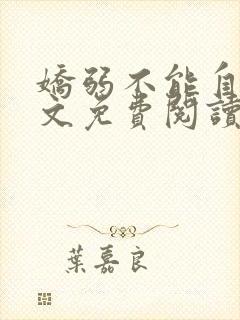 嬌弱不能自
文免費閱讀
葉嘉良